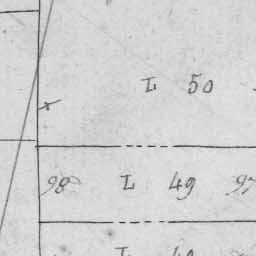 L 50
98 L 49 97
L 48